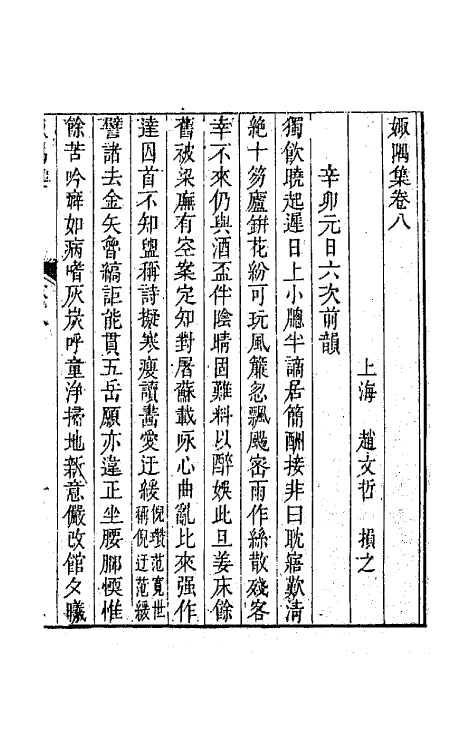 娵隅集卷八
上海　趙文哲　損之
辛卯元日六次前韻
獨飲曉起遲日上小牕半謫居簡酬接非曰耽寤歎淸
絶十笏廬缾花紛可玩風簾忽飄颺密雨作絲散殘客
幸不來仍與酒盃伴陰晴固難料以醉娛此旦姜床餘
舊被梁廡有空案定知對屠蘇載咏心曲亂比來强作
達囚首不知盥稱詩擬寒瘦讀畵愛迂緩倪瓚范寬世稱倪迂范緩
譬諸去金矢魯縞詎能貫五岳願亦違正坐腰腳愞惟
餘苦吟癖如病嗜灰炭呼童淨掃地新意儼改館夕曦